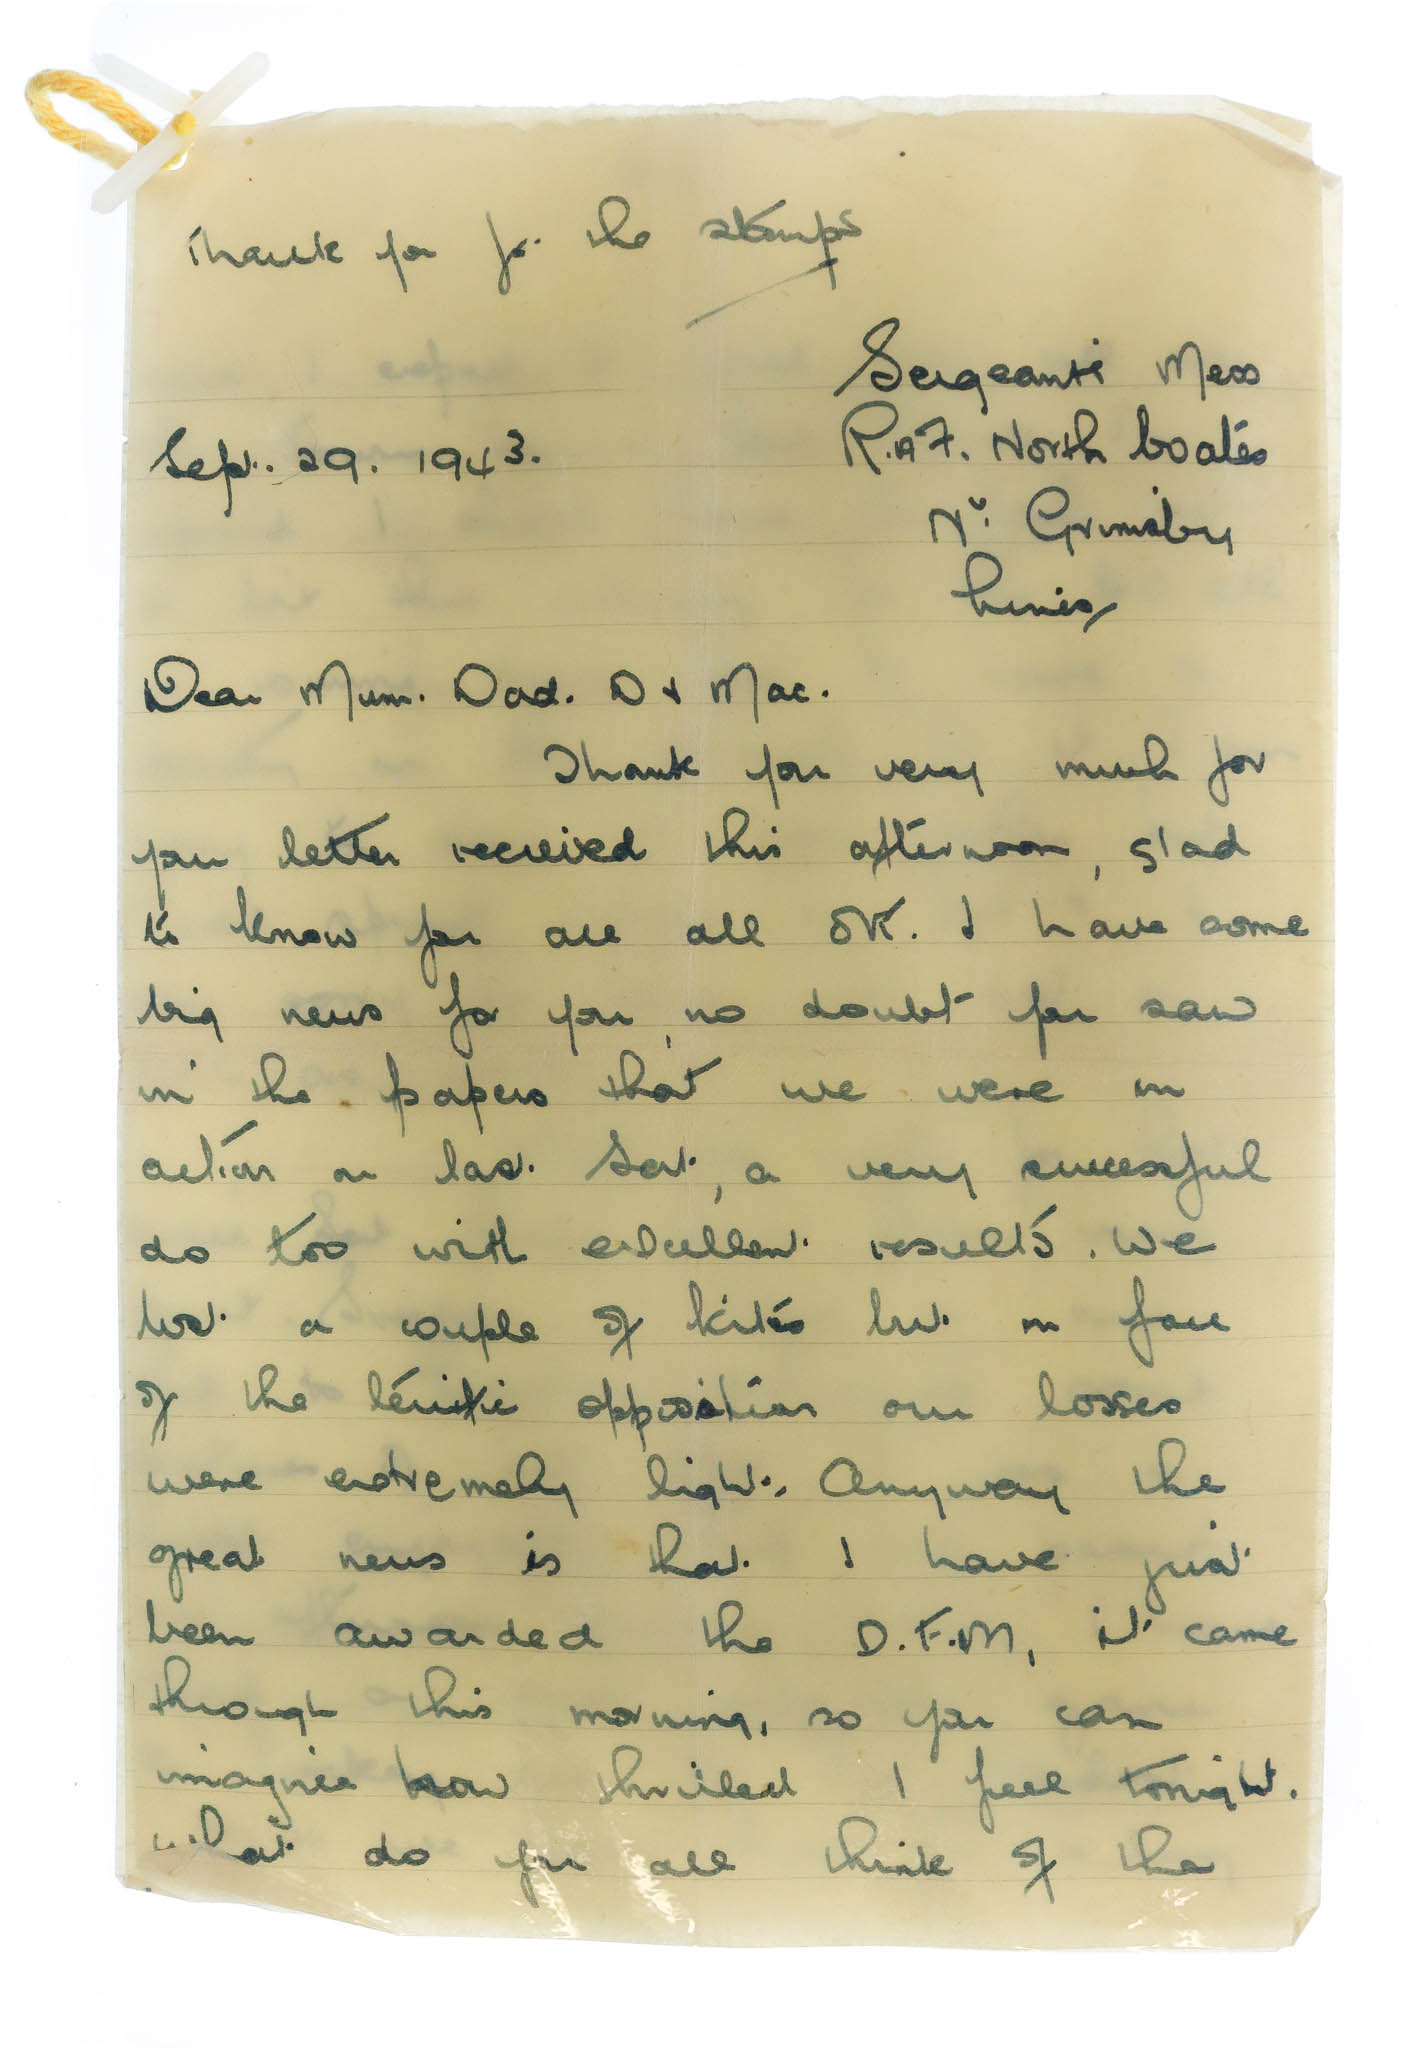 Thank you for the stamps
Sergeants Mess
R.A.F. North Coates
Sept. 29. 1943.
Nr. Grimsby
Lincs
Dear Mum. Dad. D & Mac.
Thank you very much for
your letter received this afternoon, glad
to know you are all OK. I have some
big news for you, no doubt you saw
in the papers that we were in
action on last Sat, a very successful
do too with excellent results. We
lost a couple of kites but in face
of the terrific opposition our losses
were extremely light. Anyway the
great news is that I have just
been awarded the D.F.M, it came
through this morning, so you can
imagine how thrilled I feel tonight.
What do you all think of the